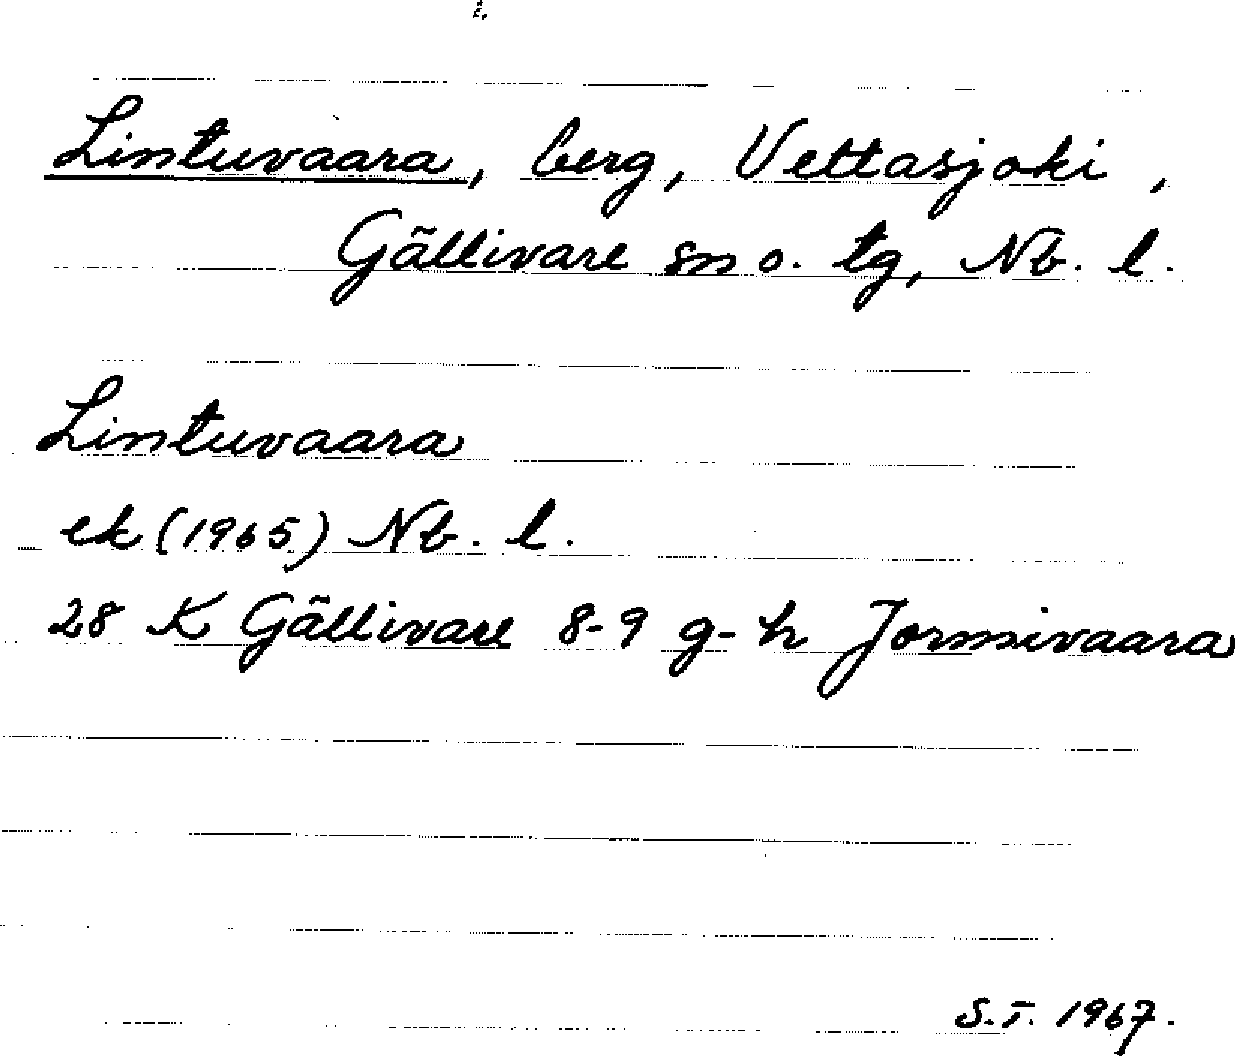 Lintuvaara, berg, Vettasjoki,
Gällivare sn o. tg, Nb. l.
Lintuvaara
ek (1965) Nb. l.
28 K Gällivare 8-9 g-h Jormivaara
S.I. 1967.